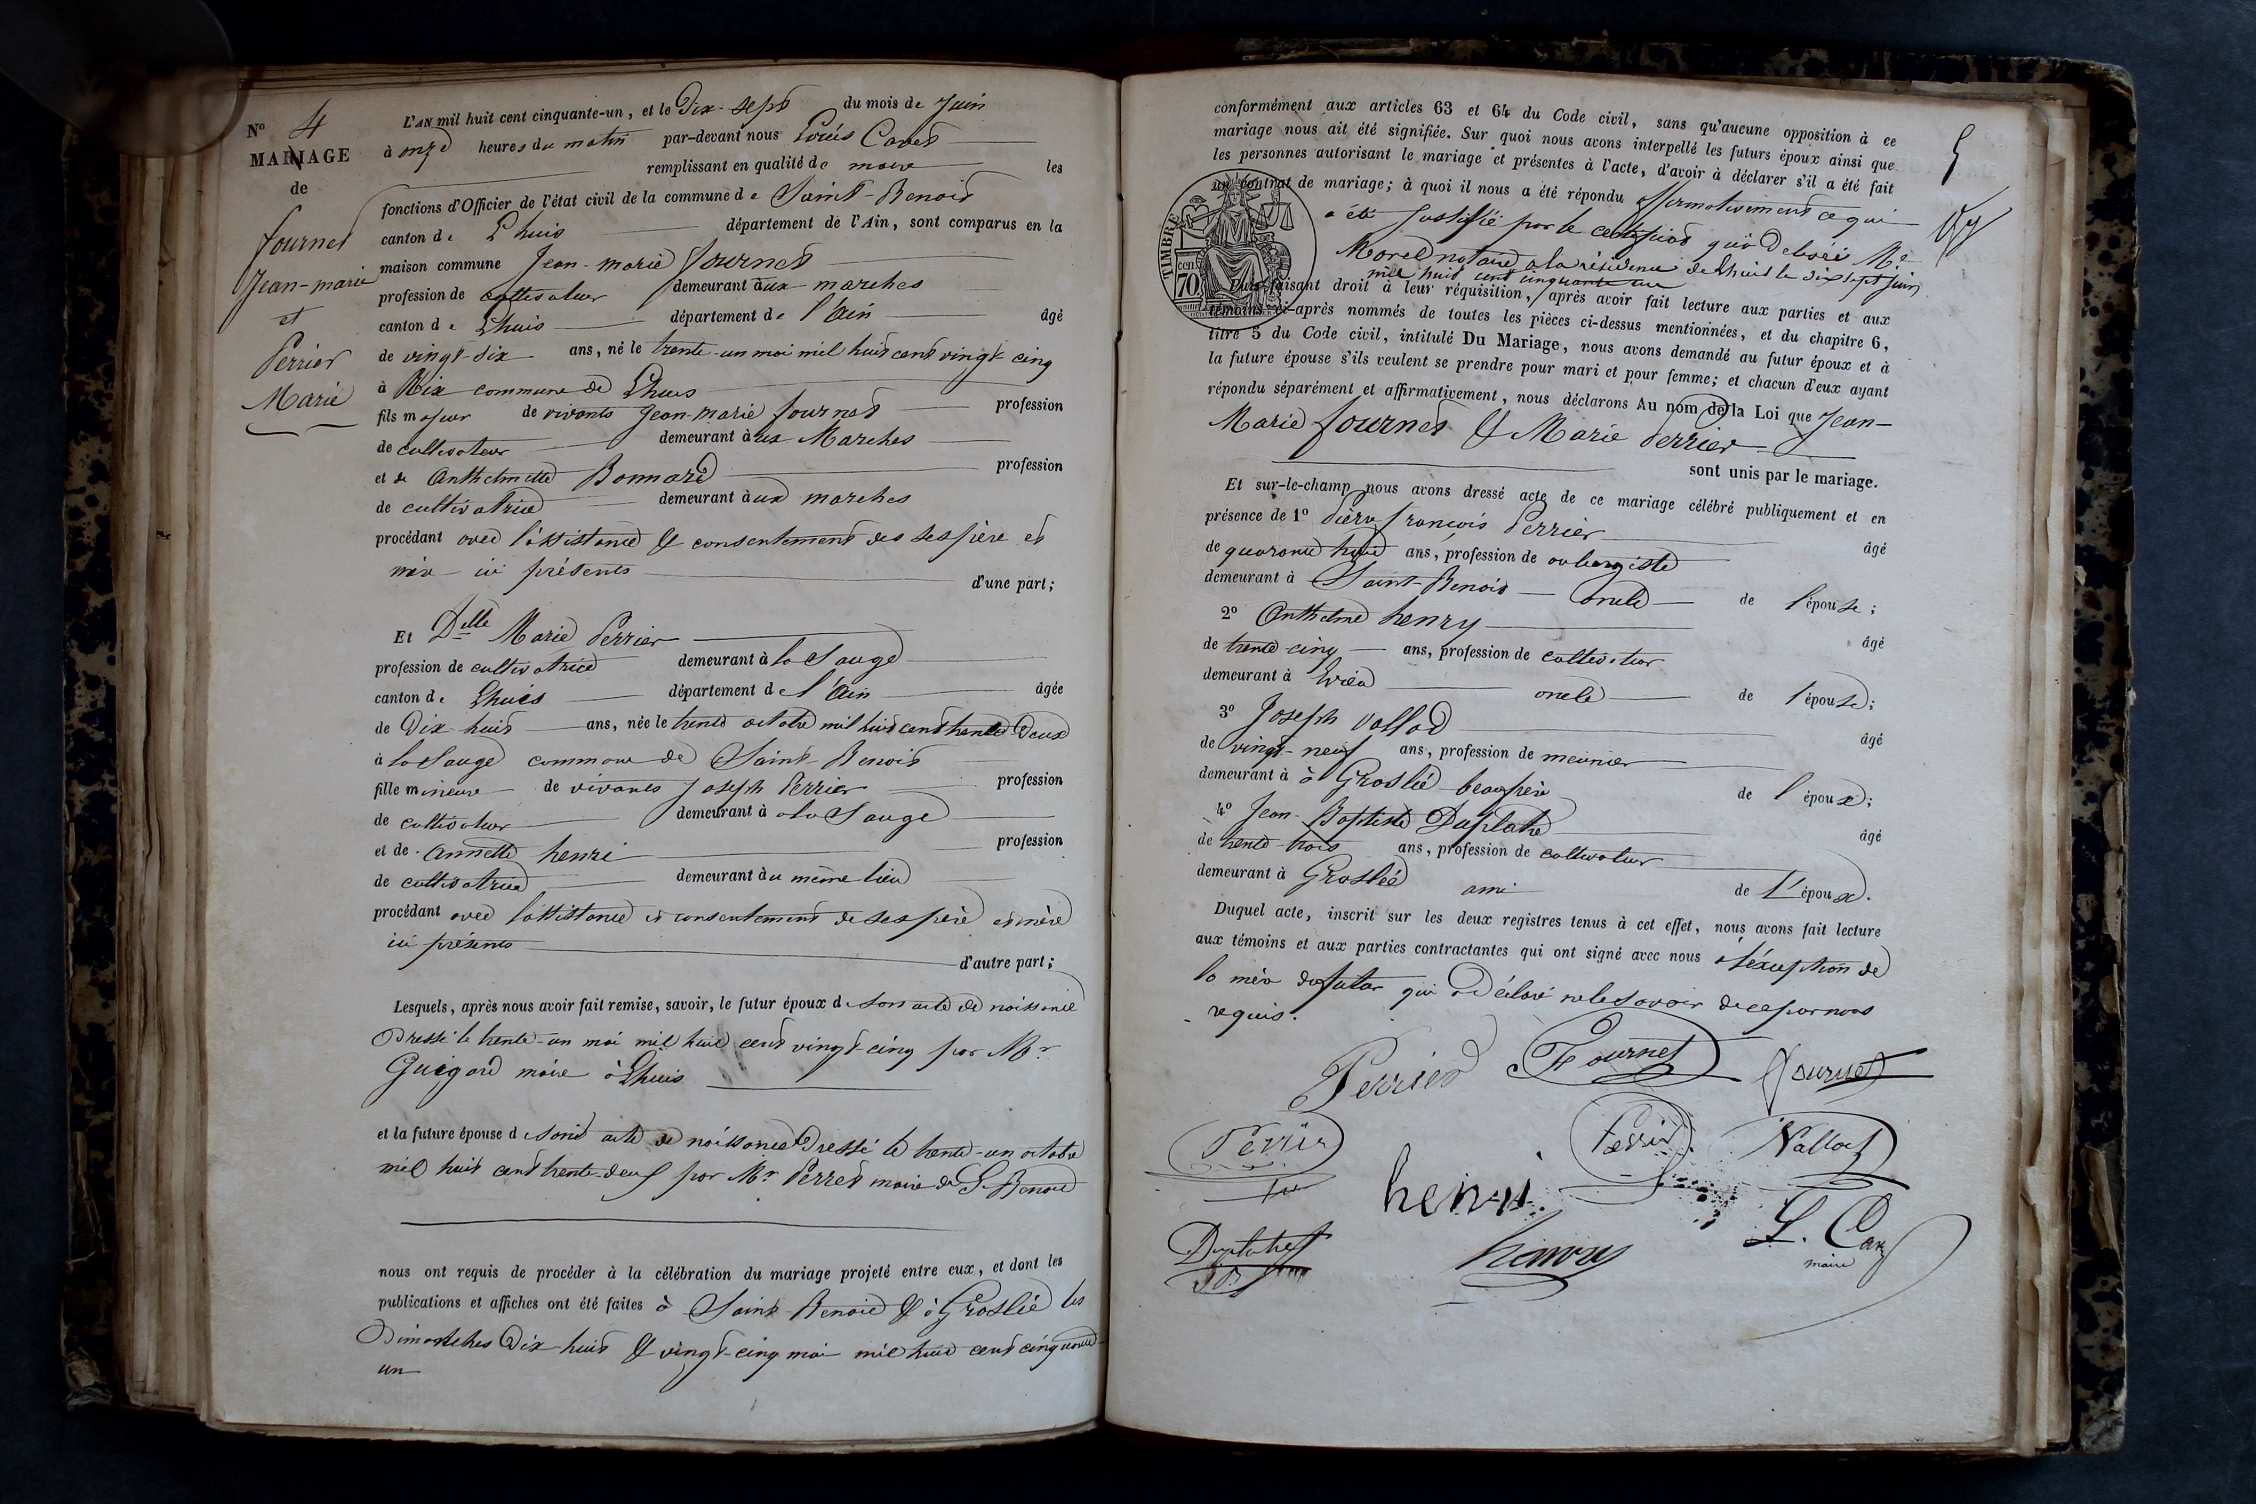 N° 4
MARIAGE
de
fournet
Jean-marie
et
Perrier
Marie
L'AN mil huit cent cinquante-un, et le Dix-sept du mois de Juin
à onze heures du matin par-devant nous Louis
remplissant en qualité de maire les
fonctions d'Officier de l'état civil de la commune de Saint-Benoit
canton de Lhuis département de l'Ain, sont comparus en la
maison commune Jean-marie fournet
profession de cultivateur demeurant aux marches
canton de Lhuis département de l'Ain âgé
de vingt-six ans, né le trente-un mai mil huit cent vingt cinq
à Rix commune de Lhuis
fils majeur de vivants Jean-marie fournet profession
de cultivateur demeurant aux Marches
et de Anthelmette Bonnard profession
de cultivatrice demeurant aux marches
procédant avec l'assistance & consentement des ses père et
mère ici présents d'une part;
Et Delle Marie Perrier
profession de cultivatrice demeurant à la Sauge
canton de Lhuis département de l'Ain âgée
de Dix huit ans, née le trente octobre mil huit cent trente Deux
à la Sauge commune de Saint-Benoit
fille mineure de vivants Joseph Perrier profession
de cultivateur demeurant à a la Sauge
et de Annette henri profession
de cultivatrice demeurant au même lieu
procédant avec l'assistance et consentement de ses père et mère
ici présents d'autre part;
Lesquels, après nous avoir fait remise, savoir, le futur époux de son acte de naissance
Dressé le trente-un mai mil huit cent vingt-cinq par Mr
Guigard maire à Lhuis
et la future épouse de son acte de naissance Dressé le trente-un octobre
mil huit cent trente-deux par Mr Perret maire de St Benoit
nous ont requis de procéder à la célébration du mariage projeté entre eux, et dont les
publications et affiches ont été faites à Saint-Benoit & à Groslée les
Dimanches Dix-huit & vingt-cinq mai mil huit cent cinquante-
un
conformément aux articles 63 et 64 du Code civil, sans qu'aucune opposition à ce
mariage nous ait été signifiée. Sur quoi nous avons interpellé les futurs époux ainsi que
les personnes autorisant le mariage et présentes à l'acte, d'avoir à déclarer s'il a été fait
un contrat de mariage; à quoi il nous a été répondu affirmativement ce qui
a été justifié par le certificat qu'a delivré Me
Morel notaire a la résidence de Lhuis le dix sept juin
mil huit cent cinquante un
TIMBRE
cen. 70
Puis faisant droit à leur réquisition, après avoir fait lecture aux parties et aux
témoins ci-après nommés de toutes les pièces ci-dessus mentionnées, et du chapitre 6,
titre 5 du Code civil, intitulé Du Mariage, nous avons demandé au futur époux et à
la future épouse s'ils veulent se prendre pour mari et pour femme; et chacun d'eux ayant
répondu séparément et affirmativement, nous déclarons Au nom de la Loi que Jean-
Marie fournet & Marie Perrier
sont unis par le mariage.
Et sur-le-champ nous avons dressé acte de ce mariage célébré publiquement et en
présence de 1° Pierre françois Perrier âgé
de quarante huit ans, profession de aubergiste
demeurant à Saint-Benoit oncle de l'épouse;
2° Anthelme henry âgé
de trente-cinq ans, profession de cultivateur
demeurant à oncle de l'épouse;
3° Joseph Vallod âgé
de vingt-neuf ans, profession de meunier
demeurant à à Groslée beaufrère de l'époux;
4° Jean-Baptiste Duplatre âgé
de trente-trois ans, profession de cultivateur
demeurant à Groslée ami de L'époux.
Duquel acte, inscrit sur les deux registres tenus à cet effet, nous avons fait lecture
aux témoins et aux parties contractantes qui ont signé avec nous a l'éxception de
la mère du futur qui a déclaré ne le savoir de ce par nous
requis.
Perrier Fournet fournet
Perrier Perrier Vallod
henri
Duplatre henry L. Cav
maire
5